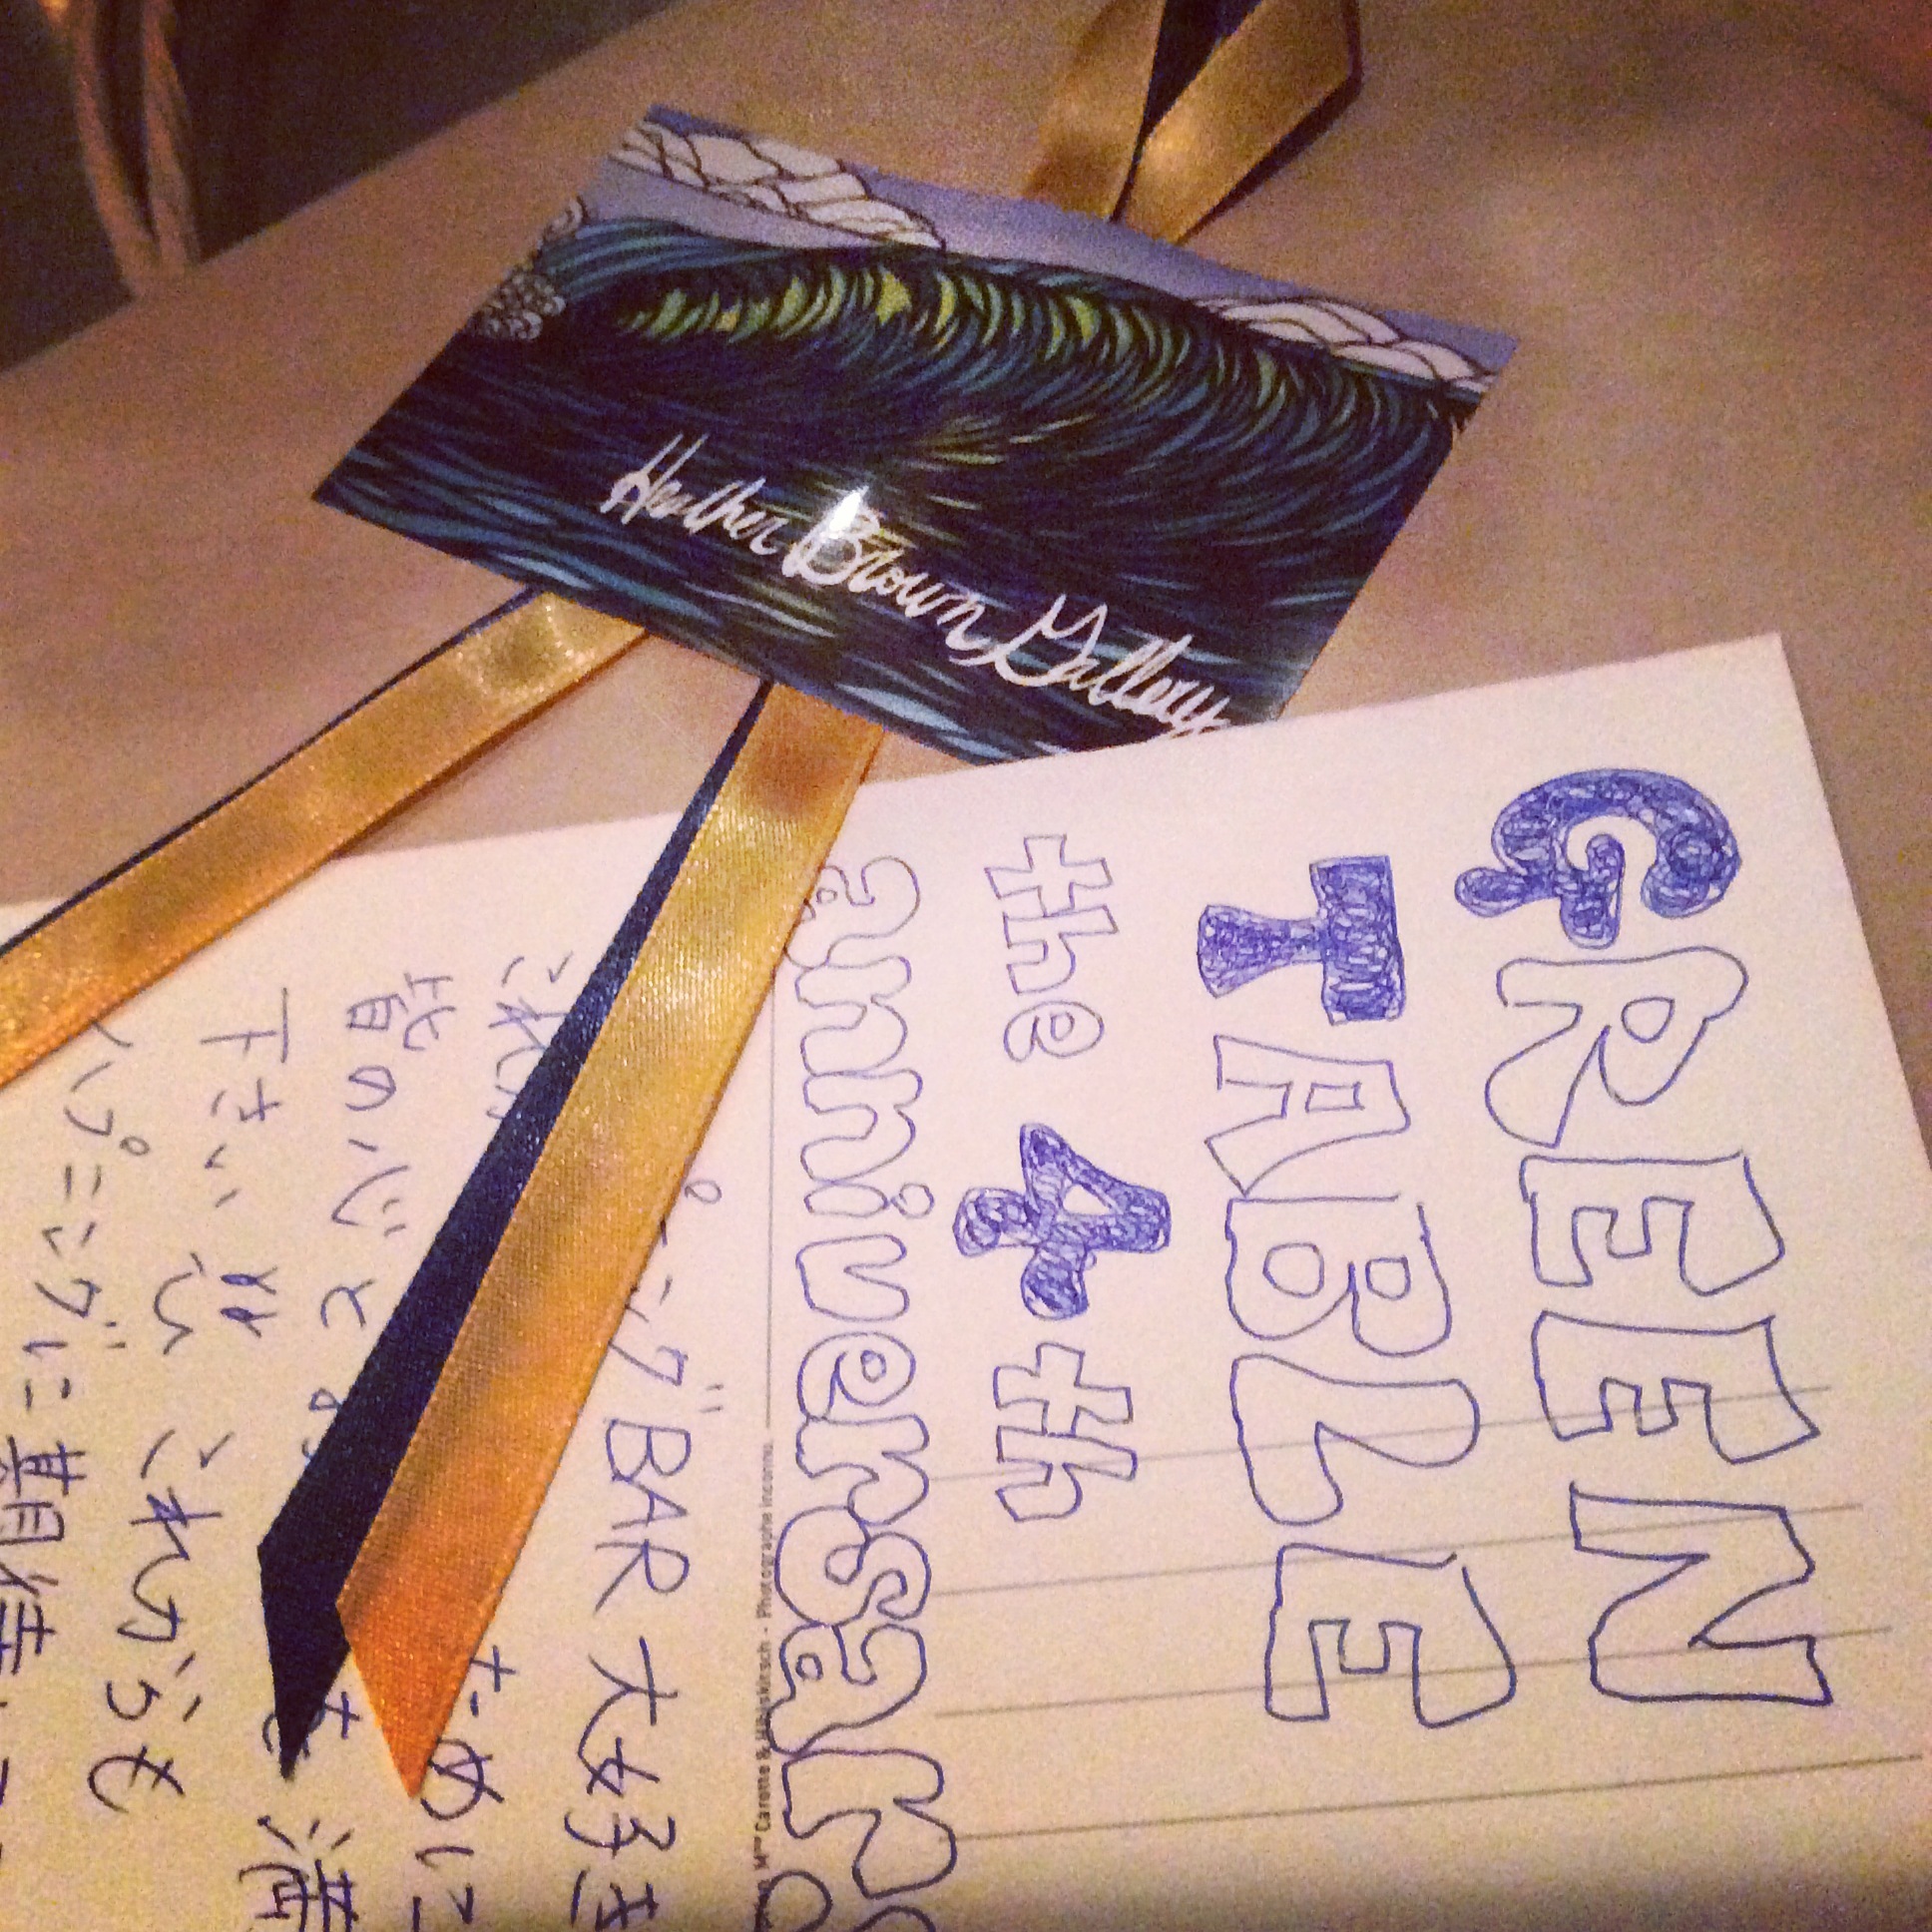 Heather Brown Gallery
GREEN
TABLE
the 4th
anniversar
Carette & - Photographe inconnu
ニングBAR 大好き
ために
皆の心と を 満
下さい これからも
ハプニングに期待